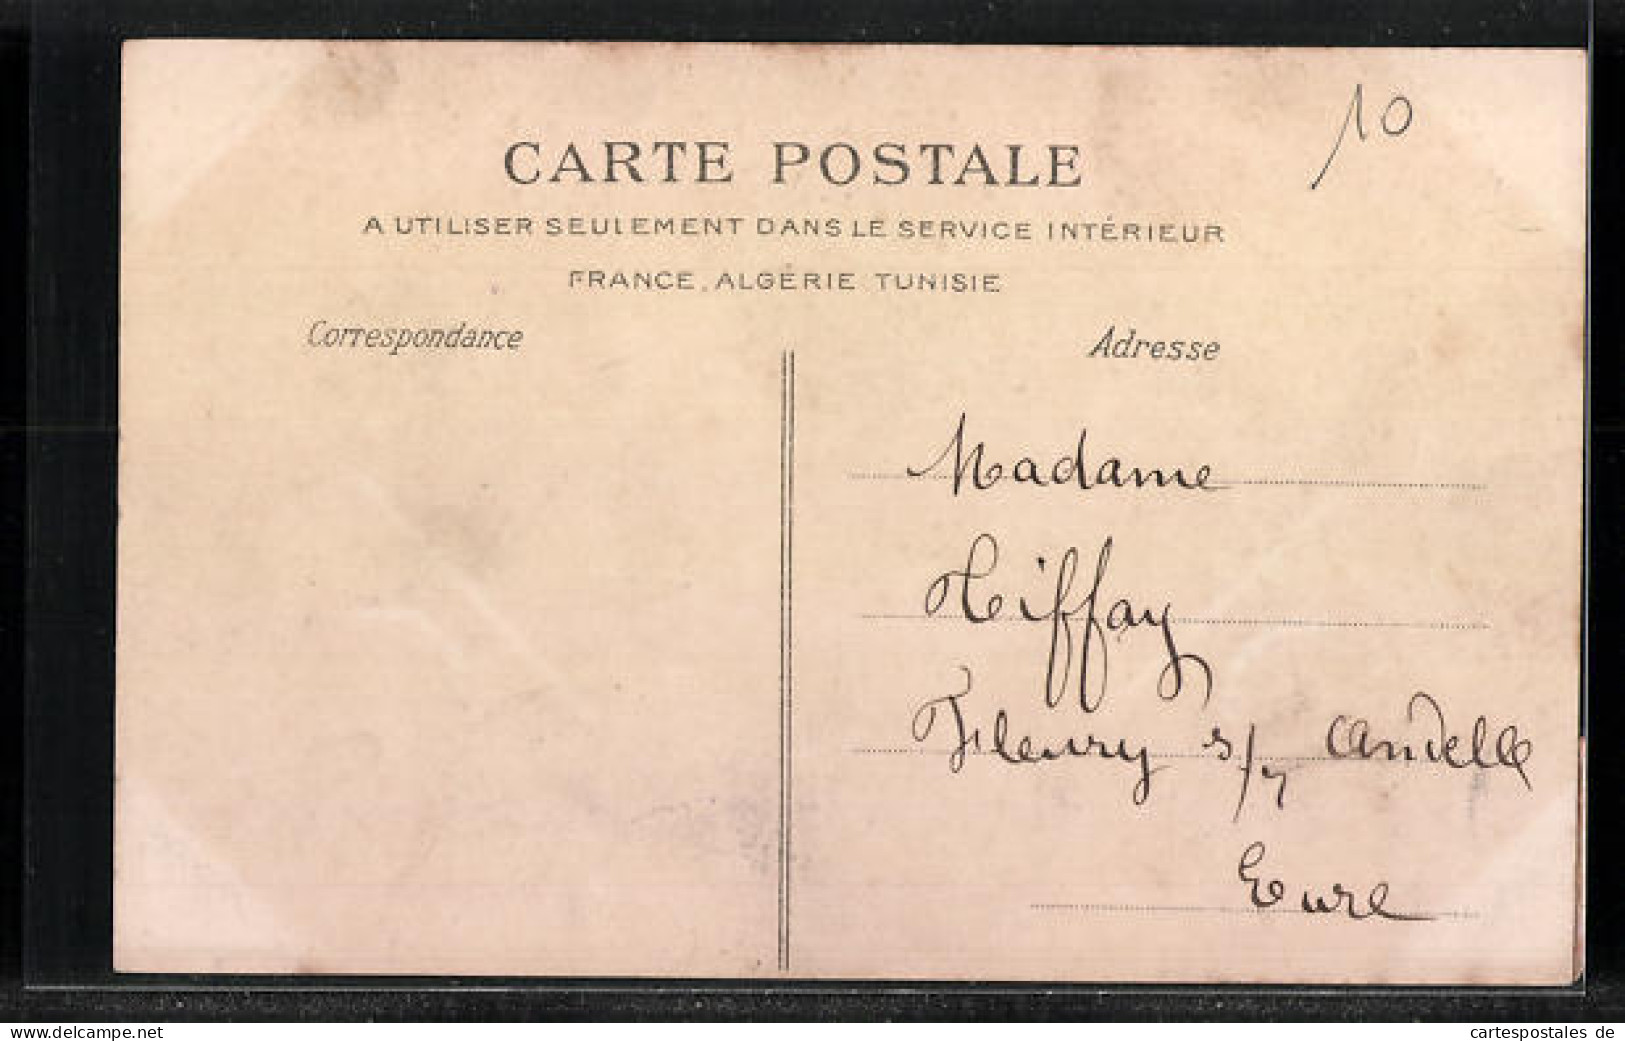 10
CARTE POSTALE
A UTILISER SEULEMENT DANS LE SERVICE INTÉRIEUR
FRANCE, ALGÉRIE TUNISIE
Correspondance
Adresse
Madame
Fleury s/ Andelle
Eure
www.delcampe.net
cartespostales de